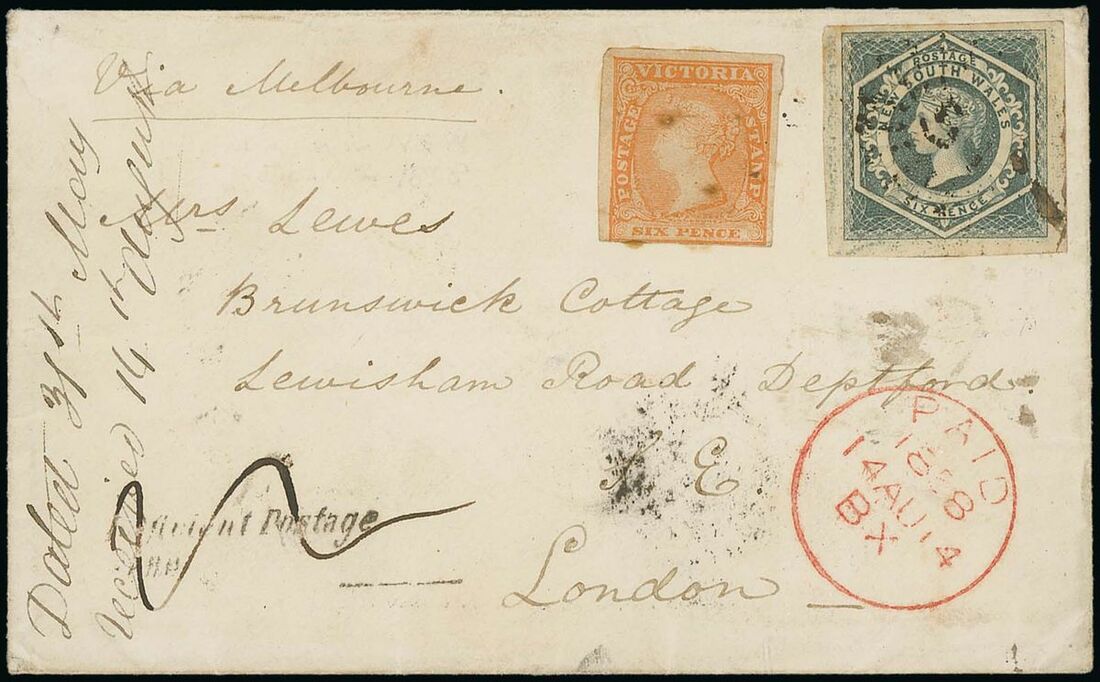 Via Melbourne.
VICTORIA
POSTAGE
STAMP
SIX PENCE
POSTAGE
NEW SOUTH WALES
SIX PENCE
Mrs Lewes
Brunswick Cottage
Lewisham Road Deptford.
S E
London
Dated 31st May
received 14th August
Postage
PAID
1858
14 AU 14
BX